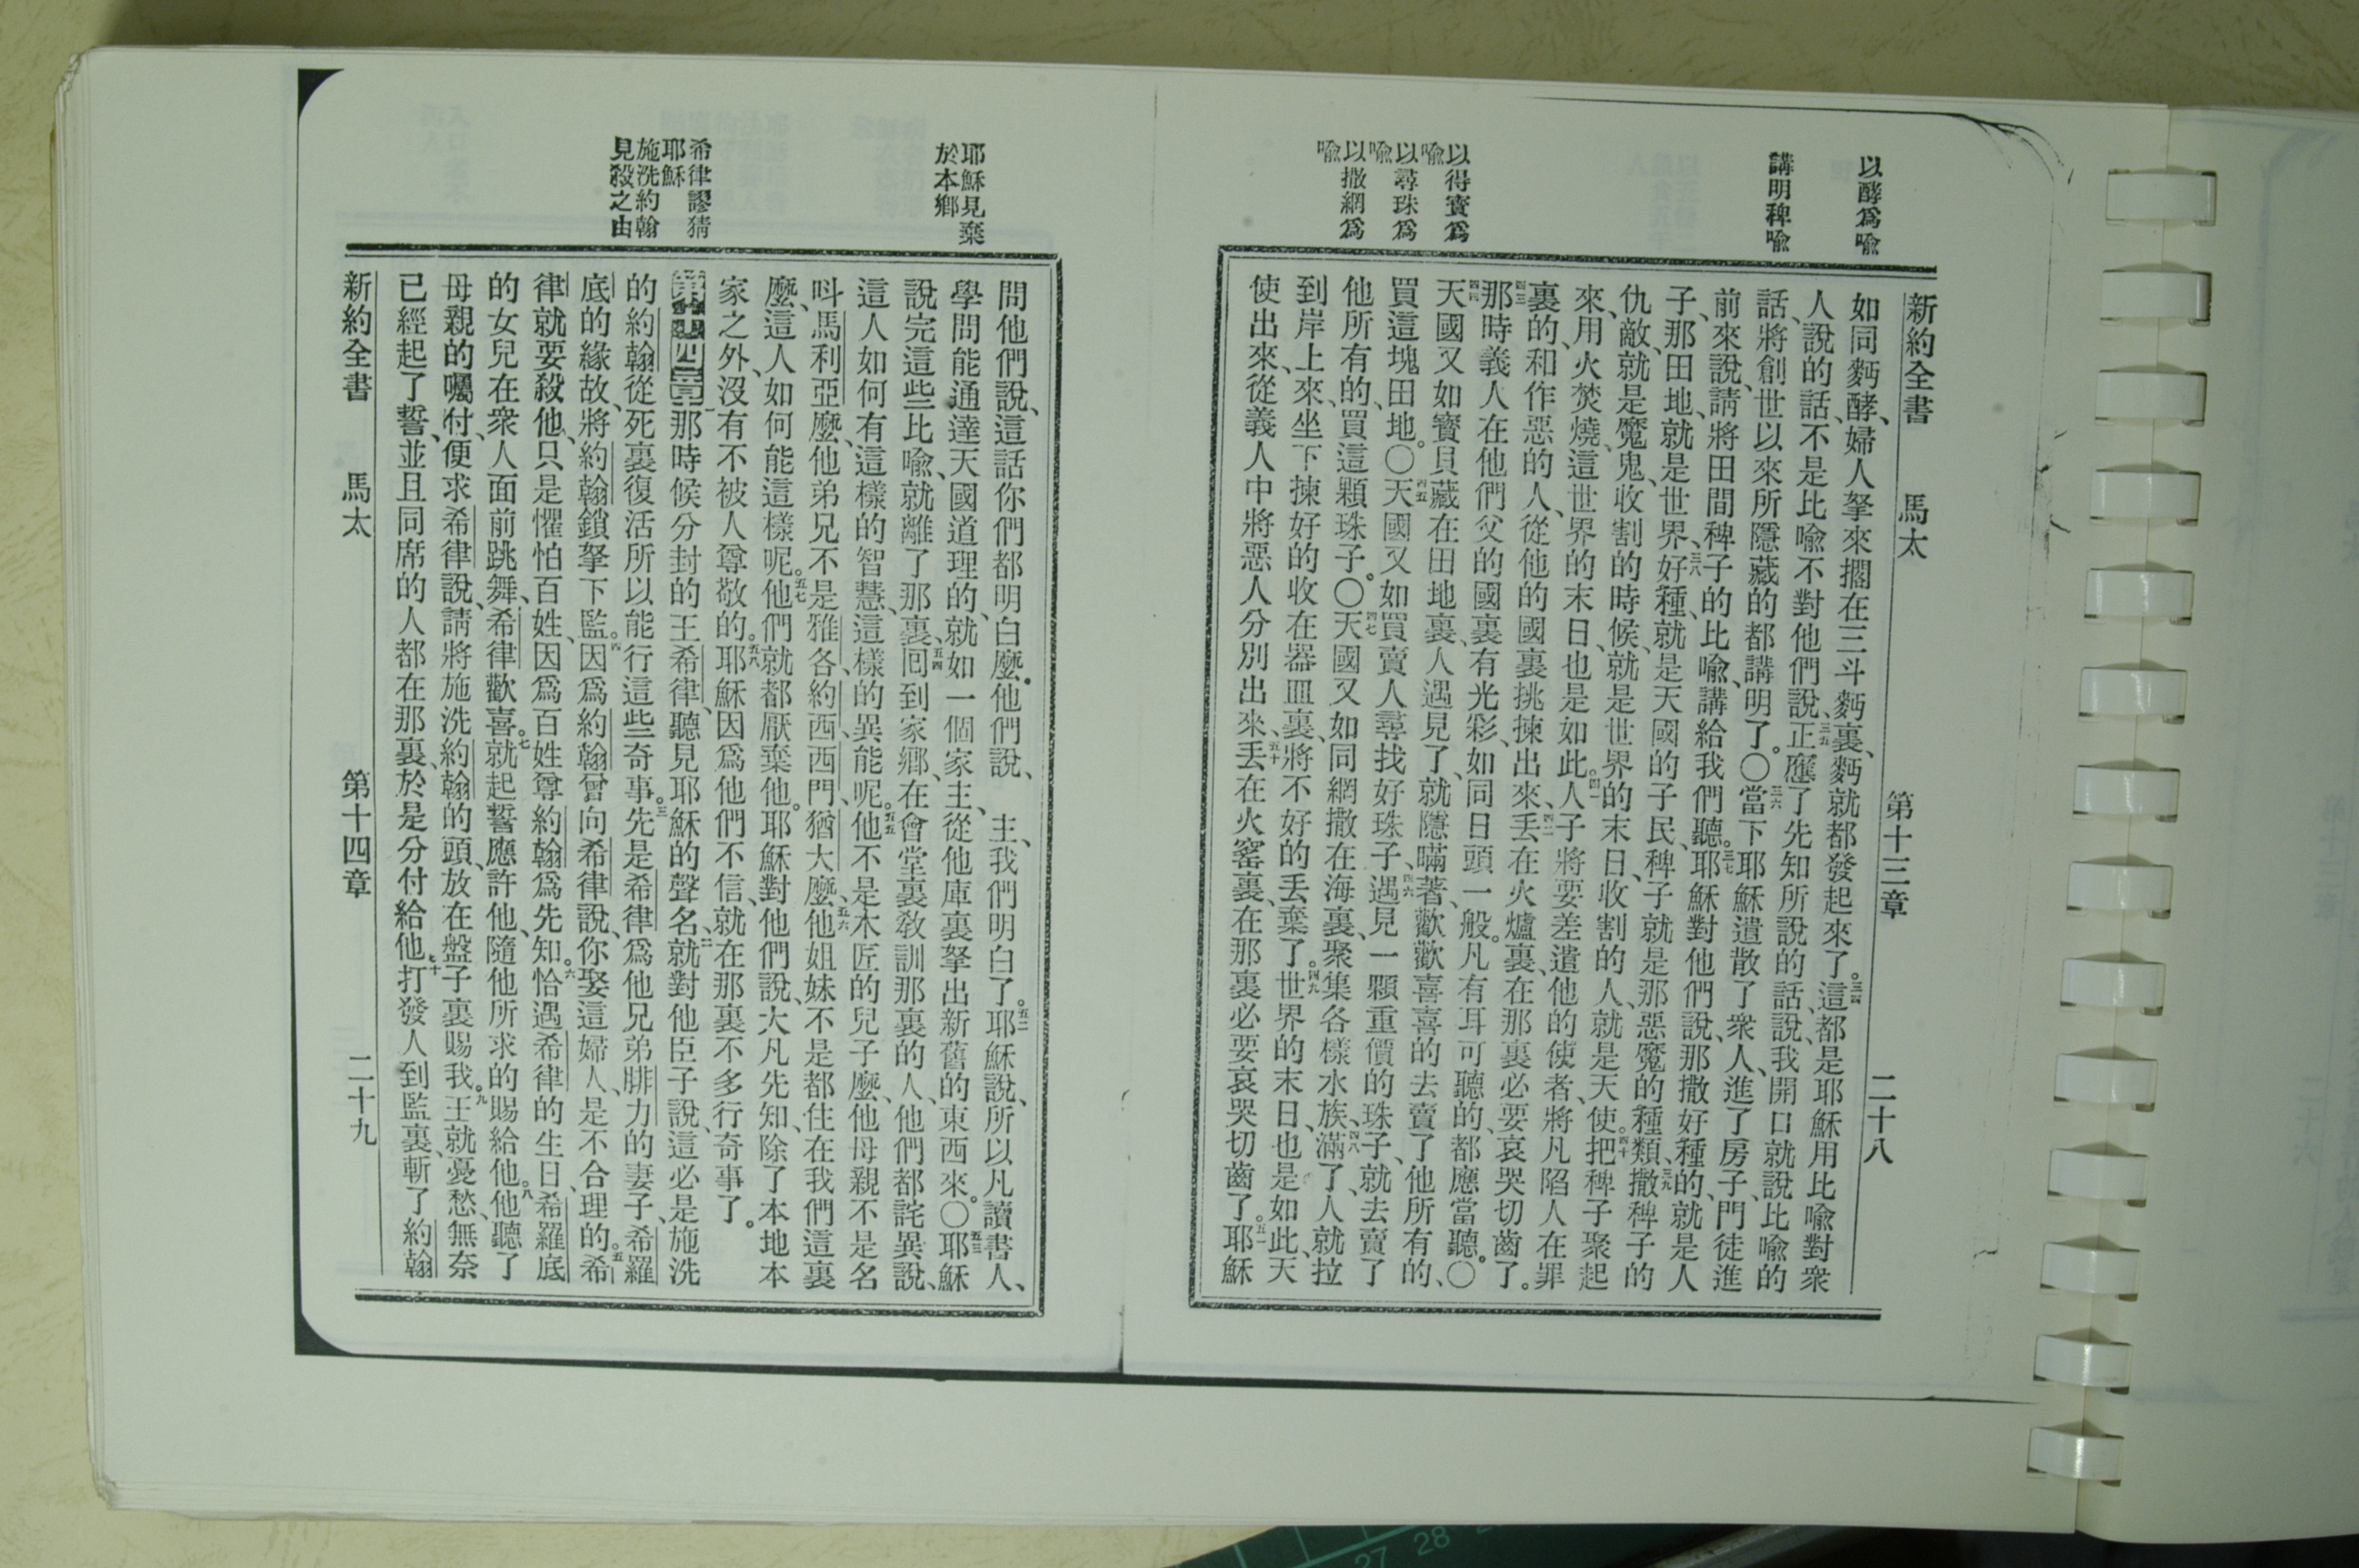 以酵爲喩
講明稗喩
以得寶爲
喩
以尋珠爲
喩
以撒網爲
喩
新約全書 馬太 第十三章 二十八
如同麪酵、婦人拏來擱在三斗麪裏、麪就都發起來了。三四這都是耶穌用比喩對衆
人、說的話、不是比喩不對他們說、三五正應了先知所說的話、說、我開口就說比喩的
話、將創世以來所隱藏的都講明了。〇三六當下耶穌遣散了衆人、進了房子、門徒進
前來說、請將田間稗子的比喩、講給我們聽。三七耶穌對他們說、那撒好種的、就是人
子、那田地、就是世界、三八好種、就是天國的子民、稗子就是那惡魔的種類、三九撒稗子的
仇敵、就是魔鬼、收割的時候、就是世界的末日、收割的人、就是天使、四十把稗子聚起
來、用火焚燒、這世界的末日、也是如此。四一人子將要差遣他的使者、將凡陷人在罪
裏的、和作惡的人、從他的國裏挑揀出來、四二丟在火爐裏、在那裏必要哀哭切齒了。
四三那時義人在他們父的國裏、有光彩、如同日頭一般。凡有耳可聽的、都應當聽。〇
四四天國又如寶貝藏在田地裏、人遇見了、就隱瞞著、歡歡喜喜的去賣了他所有的、
買這塊田地。〇四五天國又如買賣人尋找好珠子、四六遇見一顆重價的珠子、就去賣了
他所有的、買這顆珠子。〇四七天國又如同網撒在海裏、聚集各樣水族、四八滿了、人就拉
到岸上來、坐下揀好的收在器皿裏、將不好的丟棄了。四九世界的末日、也是如此、天
使出來、從義人中將惡人分別出來、五十丟在火窰裏、在那裏必要哀哭切齒了。五一耶穌
耶穌見棄
於本鄉
希律謬猜
耶穌
施洗約翰
見殺之由
問他們說、這話你們都明白麼。他們說、 主、我們明白了。五二耶穌說、所以凡讀書人、
學問能通達天國道理的、就如一個家主、從他庫裏拏出新舊的東西來。〇五三耶穌
說完這些比喩、就離了那裏、五四回到家鄉、在會堂裏敎訓那裏的人、他們都詫異說、
這人如何有這樣的智慧、這樣的異能呢。五五他不是木匠的兒子麼、他母親不是名
呌馬利亞麼、他弟兄不是雅各、約西、西門、猶大麼、五六他姐妹不是都住在我們這裏
麼、這人如何能這樣呢。五七他們就都厭棄他。耶穌對他們說、大凡先知、除了本地本
家之外、沒有不被人尊敬的。五八耶穌因爲他們不信、就在那裏不多行奇事了。
第十四章一那時候分封的王希律、聽見耶穌的聲名、二就對他臣子說、這必是施洗
的約翰從死裏復活所以能行這些奇事。三先是希律爲他兄弟腓力的妻子、希羅
底的緣故、將約翰鎖拏下監。四因爲約翰曾向希律說、你娶這婦人、是不合理的。五希
律就要殺他、只是懼怕百姓、因爲百姓尊約翰爲先知。六恰遇希律的生日、希羅底
的女兒在衆人面前跳舞、希律歡喜。七就起誓應許他、隨他所求的賜給他。八他聽了
母親的囑付、便求希律說、請將施洗約翰的頭、放在盤子裏賜我。九王就憂愁、無奈
已經起了誓、並且同席的人都在那裏、於是分付給他、十打發人到監裏、斬了約翰
新約全書 馬太 第十四章 二十九
27 28